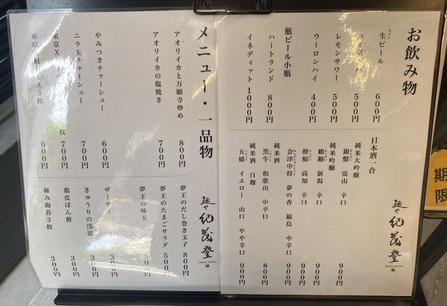 お飲み物
生ビール 600円
500円
レモンサワー 500円
ウーロンハイ 400円
瓶ビール小瓶
ハートランド 800円
イネディット 1000円
日本酒一合
純米大吟醸
銀盤 富山 辛口 900円
純米吟醸
鶴齢 新潟 辛口 900円
酔鯨 高知 辛口 900円
会津中将 夢の香 福島 中辛口 900円
純米酒
黒牛 和歌山 中辛口 800円
純米酒 白麹
五橋 イエロー 山口 やや辛口 900円
麺や紀茂登
メニュー・一品物
アオリイカと万願寺炒め 800円
アオリイカの塩焼き 700円
やみつきチャーシュー 600円
ニラ玉チャーシュー 700円
700円
3枚 600円
夢王のだし巻き玉子 800円
夢王のたまごサラダ 500円
夢王の味玉
300円
きゅうりの浅漬 300円
鶏皮ぽん酢 300円
極み海苔3枚 300円
麺や紀茂登